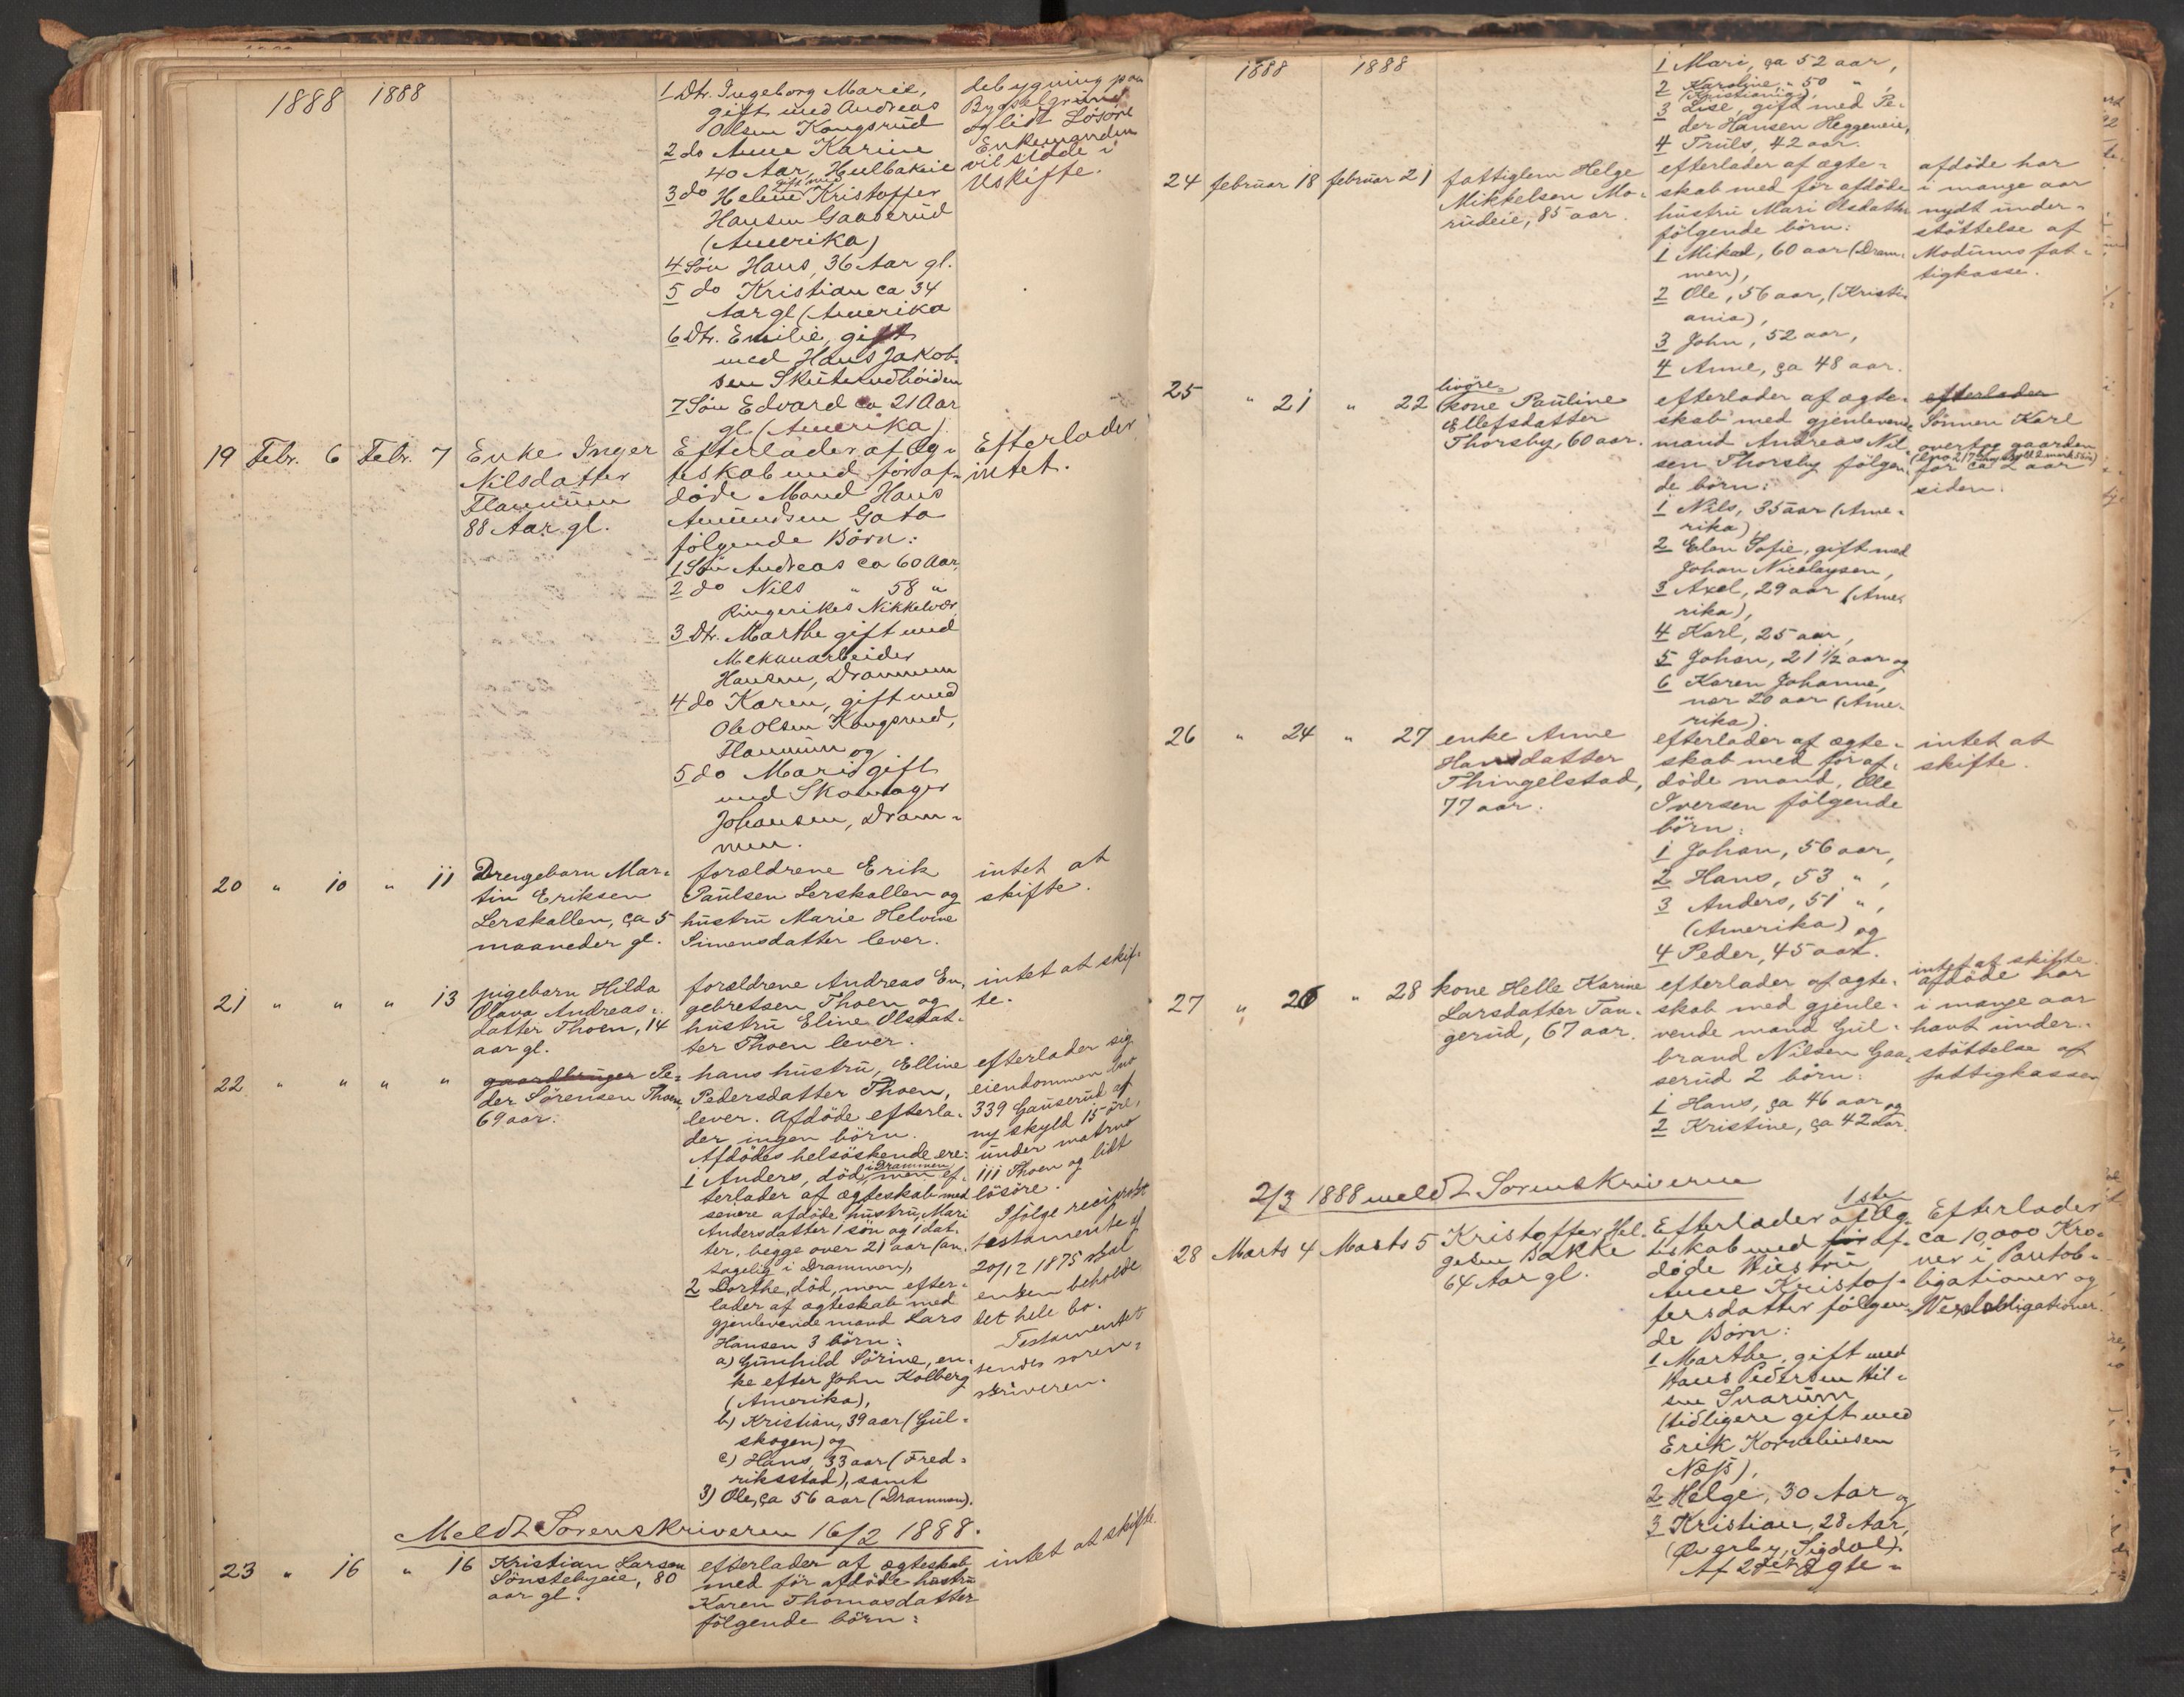 1888 1888
1 Dtr. Ingeborg Marie,
gift med Andreas
Olsen Kongsrud
2 do Anne Karine
40 Aar, Hulbakeie
gift med
3 do Heline Kristoffer
Hansen Gaaserud
(Amerika)
4 Søn Hans, 36 Aar gl.
5 do Kristian ca 34
Aar gl (Amerika
6 Dtr. Emilie, gift
med Hans Jakob-
sen Skuterudhöiden
7 Søn Edvard ca 21 Aar
gl. (Amerika)
debygning paa
Bygselgrund
og lidt Lösöre
Enkemanden
vil sidde i
Uskifte.
19 Febr. 6 Febr. 7 Enke Inger
Nilsdatter
Flannum
88 Aar gl.
Efterlader af Æg-
teskab med för af-
døde Mand Hans
Amundsen Gata
følgende Börn:
1 Søn Andreas ca 60 Aar,
2 do Nils " 58 "
Ringerikes Nikkelverk
3 Dtr. Marthe gift med
Mekanarbeider
Hansen, Drammen
4 do Karen, gift med
Ole Olsen Kongsrud,
Flannum og
5 do Mari gift
med Skomager
Johansen, Dram-
men.
Efterlader
intet.
20 " 10 " 11 Drengebarn Mar-
tin Eriksen
Lerskallen, ça 5
maaneder gl.
forældrene Erik
Paulsen Lerskallen og
hustru Marie Helvine
Simensdatter lever.
intet at
skifte.
21 " " " 13 pigebarn Hilda
Olava Andreas-
datter Thoen, 14
aar gl.
forældrene Andreas En-
gebretsen Thoen og
hustru Eline Olsdat-
ter Thoen lever.
intet at skif-
te.
22 " " " " gaardbruger Pe-
der Sörensen Thoen,
69 aar.
hans hustru, Elline
Pedersdatter Thoen,
lever. Afdöde efterla-
der ingen börn.
Afdödes helsöskende ere:
i Drammen
1 Anders, död, men ef-
terlader af ægteskab med
senere afdöde hustru, Mari
Andersdatter 1 sön og 1 dat-
ter, begge over 21 aar (an-
tagelig i Drammen),
2 Dorthe, död, men efter-
lader af ægteskab med
gjenlevende mand Lars
Hansen 3 börn:
a) Gunhild Sörine, en-
ke efter John Kolberg
(Amerika),
b) Kristian, 39 aar (Gul-
skogen) og
c) Hans, 33 aar (Fred-
riksstad), samt
3) Ole, ça 56 aar (Drammen).
efterlader sig
eiendommen lno
339 Gauserud af
ny skyld 15 öre,
under matrno
111 Thoen og lidt
lösöre.
Ifölge reciprokt
testamente af
20/12 1875 skal
enken beholde
det hele bo.
Testamentet
sendes soren-
skriveren.
Meldt Sorenskriveren 16/2 1888.
23 " 16 " 16 Kristian Larsen
Sönstebyeie, 80
aar gl.
efterlader af ægteskab
med för afdöde hustru
Karen Thomasdatter
fölgende börn:
intet at skifte.
1888 1888
1 Mari, ça 52 aar,
2 Karoline, " 50 " ,
(Kristiania),
3 Lise, gift med Pe-
der Hansen Heggeneie,
4 Truls, 42 aar.
24 februar 18 februar 21 fattiglem Helge
Mikkelsen Mo-
rudeie, 85 aar.
efterlader af ægte-
skab med för afdöde
hustru Mari Olsdatter
fölgende börn:
1 Mikal, 60 aar (Dram-
men),
2 Ole, 56 aar, (Kristi-
ania),
3 John, 52 aar,
4 Anne, ça 48 aar.
afdöde har
i mange aar
nydt under-
stöttelse af
Modums fat-
tigkasse.
25 " 21 " 22 livöre-
kone Pauline
Ellefsdatter
Thorsby, 60 aar.
efterlader af ægte-
skab med gjenlevende
mand Andreas Nil-
sen Thorsby fölgen-
de börn:
1 Nils, 35 aar (Ame-
rika)
2 Elen Sofie, gift med
Johan Nicolaysen,
3 Axel, 29 aar (Ame-
rika),
4 Karl, 25 aar,
5 Johan, 21 1/2 aar og
6 Karen Johanne,
nær 20 aar (Ame-
rika).
efterlader
Sönnen Karl
overtog gaarden
for ca 2 aar
siden.
26 " 24 " 27 enke Anne
Hansdatter
Thingelstad,
77 aar.
efterlader af ægte-
skab med för af-
döde mand, Ole
Iversen fölgende
börn:
1 Johan, 56 aar,
2 Hans, 53 " ,
3 Anders, 51 " ,
(Amerika) og
4 Peder, 45 aar.
intet at
skifte.
27 " 26 " 28 kone Helle Karine
Larsdatter Tan-
gerud, 67 aar.
efterlader af ægte-
skab med gjenle-
vende mand Gul-
brand Nilsen Gaa-
serud 2 börn:
1 Hans, ça 46 aar og
2 Kristine, ça 42 aar.
intet at skifte.
afdöde har
i mange aar
havt under-
stöttelse af
fattigkassen
2/3 1888 meldt Sorenskriveren
28 Marts 4 Marts 5 Kristoffer Hel-
gesen Bakke
64 Aar gl.
1ste
Efterlader af Æg-
teskab med för af-
døde Hustru
Anne Kristof-
fersdatter fölgen-
de Börn:
1 Marthe, gift med
Hans Pedersen Hil-
sen Snarum
(tidligere gift med
Erik Korneliusen
Næss),
2 Helge, 30 Aar og
3 Kristian, 28 Aar,
(Øverby, Sigdal).
Af 2det Ægte-
Efterlader
ca 10,000 Kro-
ner i Pantob-
ligationer og
Vexelobligationer.